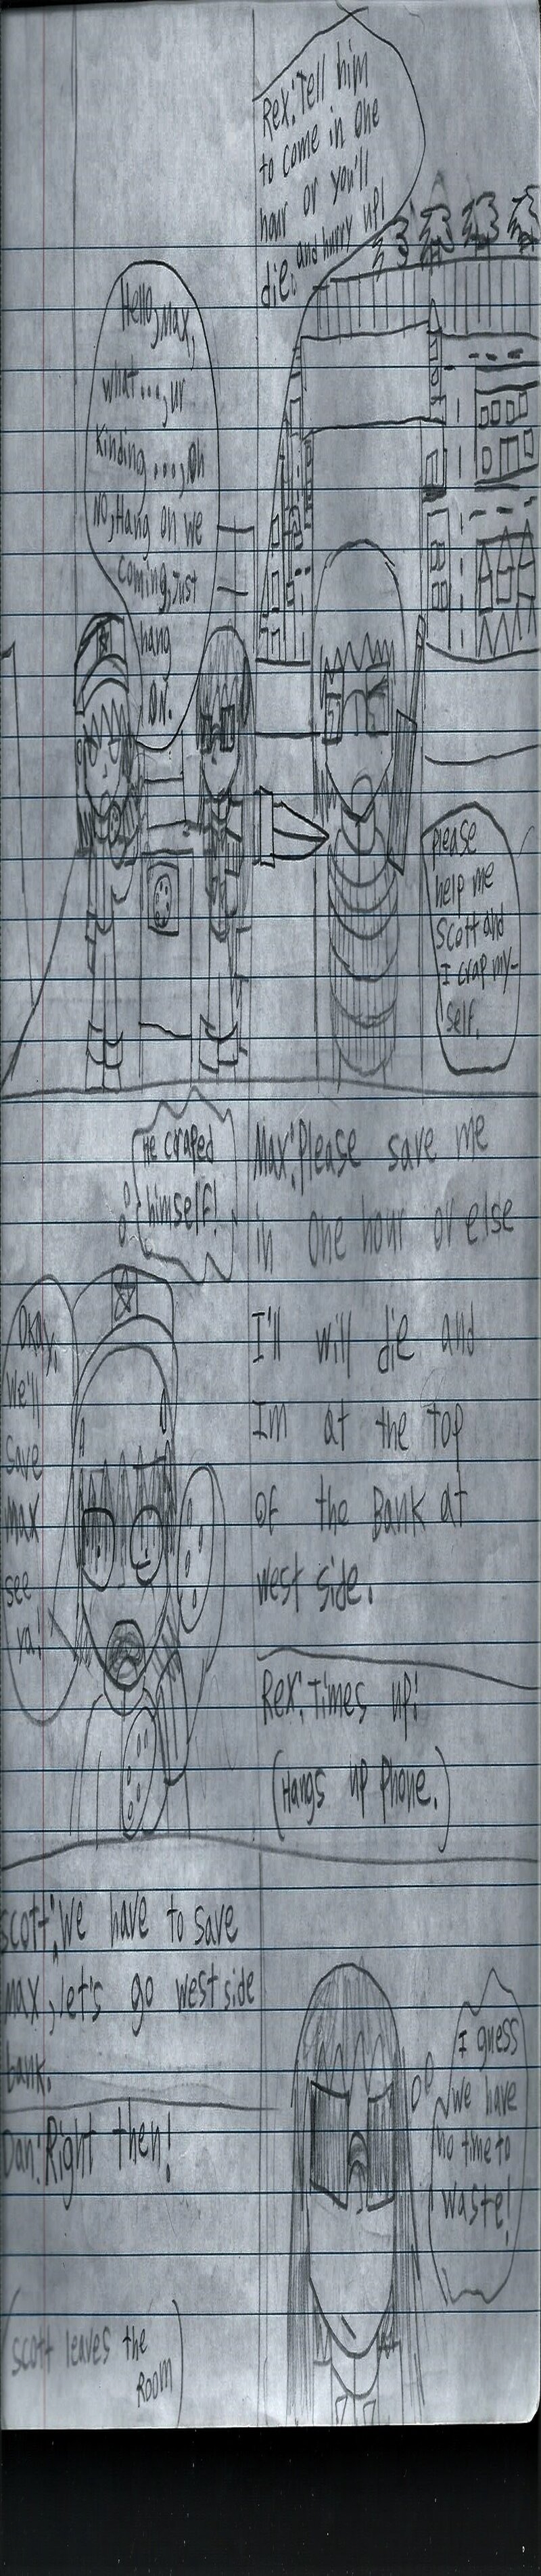 Rex: Tell him
to come in one
hour or you'll
die. and hurry up!
Hello, Max,
what..., ur
Kinding...., Oh
No, Hang on we
coming, Just
hang
ON.
Please
help me
Scott and
I crap my-
self.
He craped
himself!
Max: Please save me
in one hour or else
I'll will die and
Im at the top
of the Bank at
west side.
Okay,
We'll
save
max
see
ya!
Rex: Times up!
(Hangs up Phone.)
Scott: We have to save
max, let's go west side
bank.
Dan: Right then!
I guess
we have
no time to
waste!
(scott leaves the
Room)